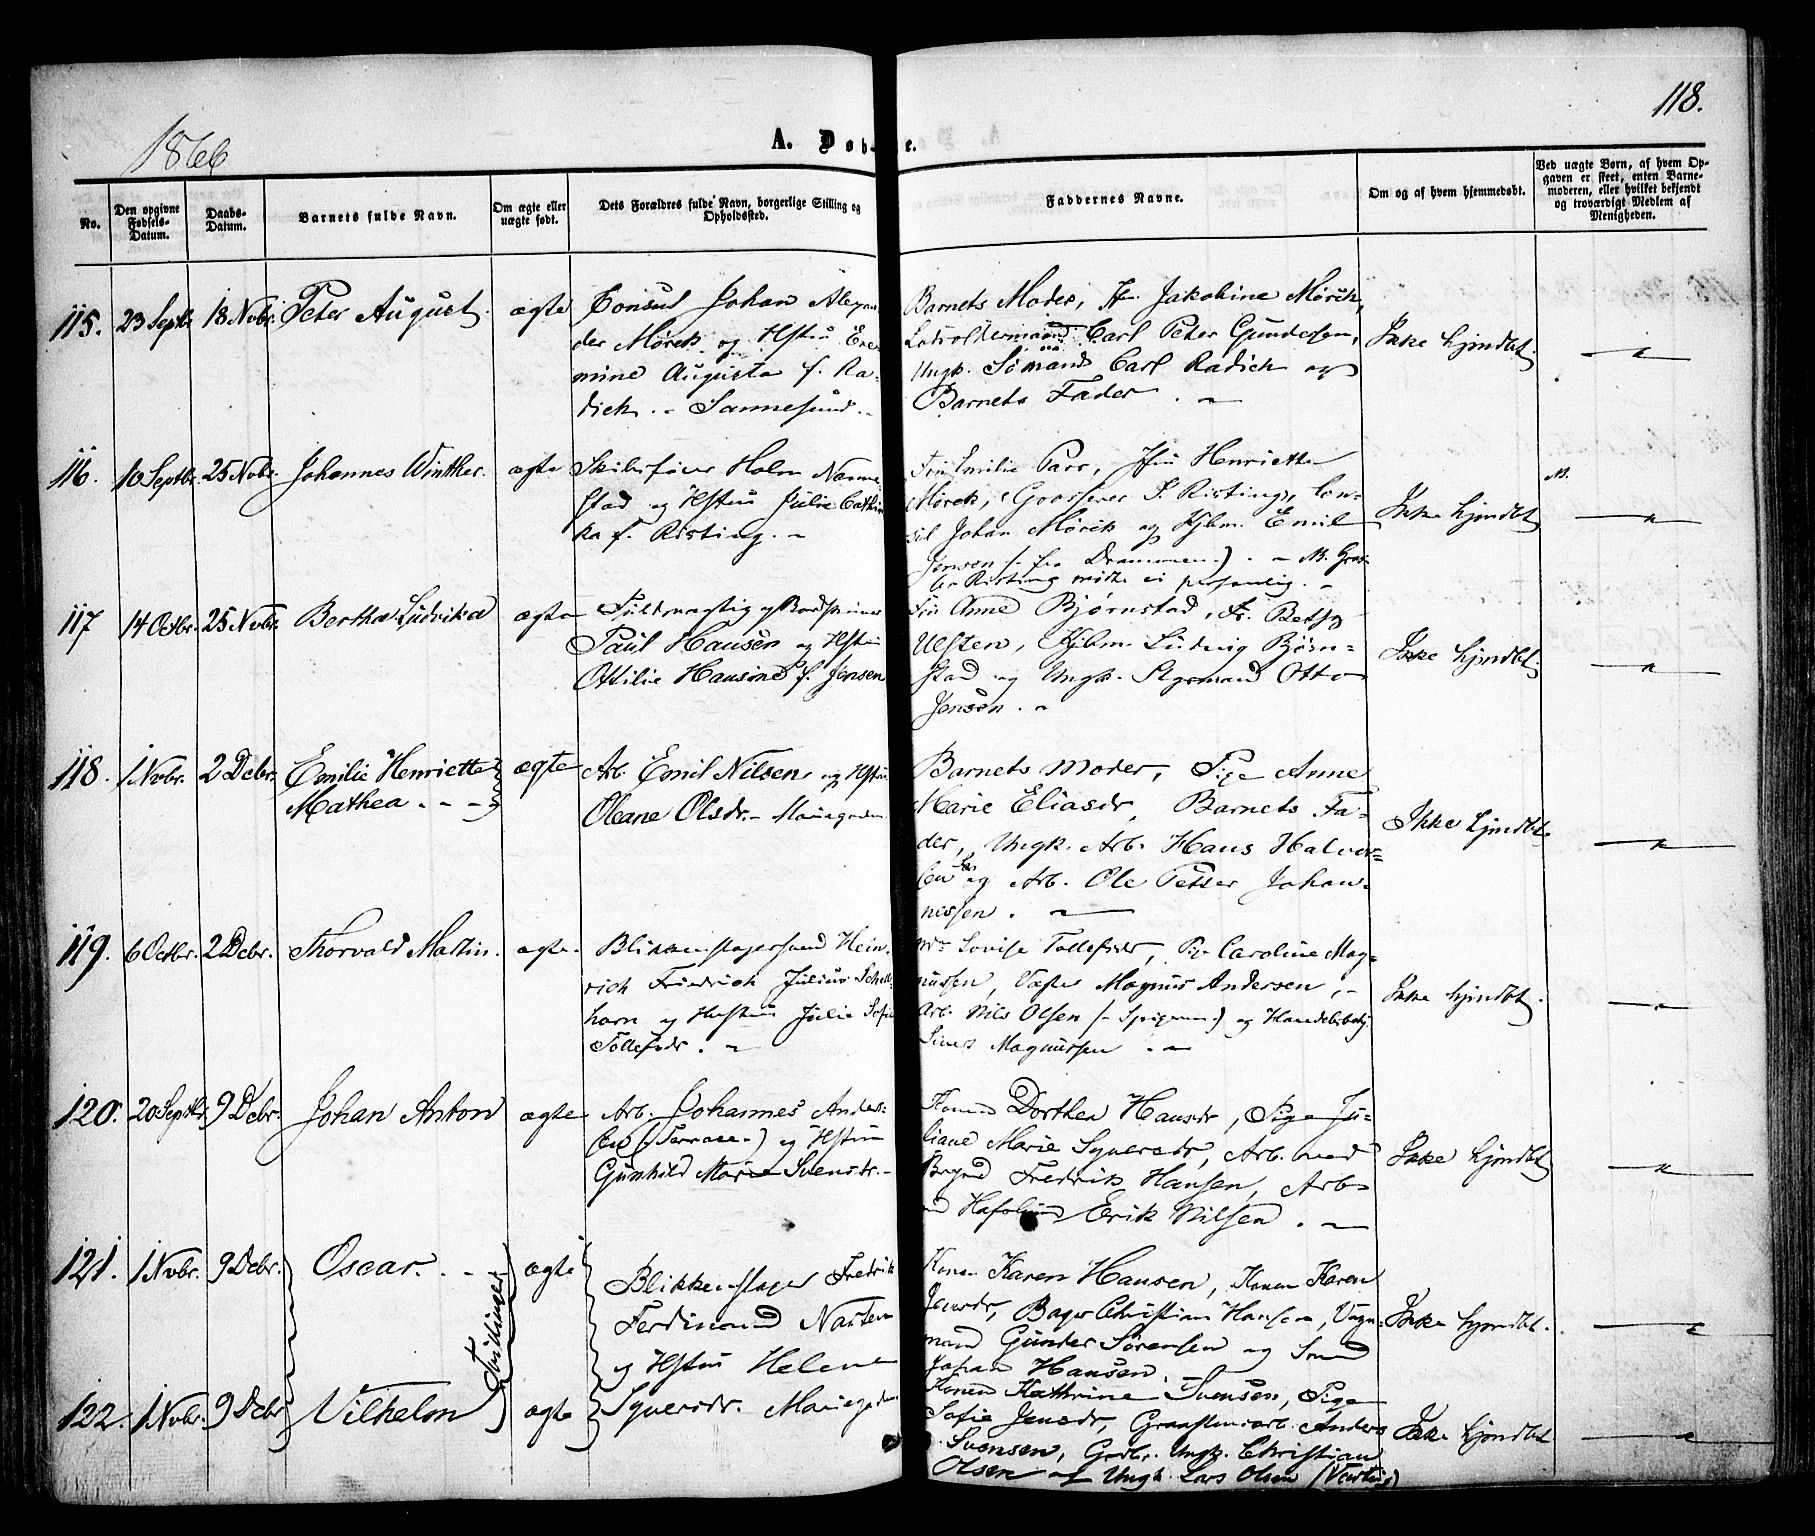 118.
1866
A. Døbte.
No.
Den opgivne Fødsels-Datum.
Daabs-Datum.
Barnets fulde Navn.
Om ægte eller uægte født.
Dets Forældres fulde Navn, borgerlige Stilling og Opholdssted.
Faddernes Navne.
Om og af hvem hjemmedøbt.
Ved uægte Børn, af hvem Opgaven er skeet, enten Barnemoderen, eller hvilket bekjendt og troværdigt Medlem af Menigheden.
115. 23 Septbr. 18 Novbr. Peter August. ægte
Consul Johan Alexan-
der Mørck og Hstru Ere-
mine Augusta f. Ra-
dich. - Sannesund. -
Barnets Moder, Fr. Jakobine Mørck,
Lodsoldermand Carl Peter Gundersen,
Ungk. Sømand Carl Radich og
Barnets Fader. -
Ikke hjmdbt.
116. 10 Septbr. 25 Novbr. Johannes Winther. ægte
Skibsfører Holm Nanne-
stad og Hstru Julie Cathin
ka f. Risting. -
Emilie Parr, Henriette
Mørck, Grosserer P. Risting, Con-
sul Johan Mørck og Kjbm. Emil
Jensen (- fra Drammen -). - NB. Gros-
Risting mødte ei personlig. -
Ikke hjmdbt
117 14 Octbr. 25 Novbr. Bertha Ludvika ægte
Fuldmægtig og
Paul Hansen og Hstru
Ottilie Hansine f. Jensen
Anne Bjørnstad, Fr. Betsy
Kjbm. Ludvig Bjørn-
stad og Ungk. Styrmand Otto
Jensen. -
Ikke hjmdbt.
118. 1 Novbr. 2 Decbr. Emilie Henriette ægte
Mathea. - - -
Arb. Emil Nilsen og Hstru
Oleane Olsdr. - Mariegaden
Barnets Moder, Pige Anne
Marie Eliasdr, Barnets Fa-
der, Ungk. Arb. Hans Halvor-
sen og Arb. Ole Petter Johan-
nessen. -
Ikke hjmdbt.
119. 6 Octbr. 2 Decbr. Thorvald Martin. ægte.
Blikkenslagersvend Hein-
rich Friedrich Julius Schell
horn og Hustru Julie Sofie
Tollefsdr. -
Lovise Tollefsdr, Pge Caroline Mag-
nussen, Magnus Andersen, -
Arb. Nils Olsen (- Spigerv. -) og Handelsbetj
Magnussen. -
Ikke hjmdbt.
120. 20 Septbr. 9 Decbr. Johan Anton ægte
Arb. Johannes Ander-
sen (- Terrasse -) og Hstru
Gunhild Marie Svensdr. -
Konen Dorthea Hansdr, Pige Ju-
liane Marie Syversdr, Arb. med
Brynd Fredrik Hansen, Arb-
Hafslund Erik Nilsen. -
Ikke hjmdbt
121. 1 Novbr. 9 Decbr. Oscar. - ægte
Tvillinger
Blikkenslager Fredrik
Ferdinand
og Hstru Helene
Syversdr. Mariegaden
Konen Karen Hansen, Konen Karen
Jensdr, Bager Christian Hansen, Vogn-
mand Gunder Sørensen og
Johan Hansen. -
Ikke hjmdbt.
122. 1 Novbr. 9 Decbr Vilhelm ægte
Konen Kathrine Svensen, Pige
Sofie Jensdr, Anders
Svensen, Ungk. Christian
Olsen af Ungk. Lars Olsen
Ikke hjmdbt